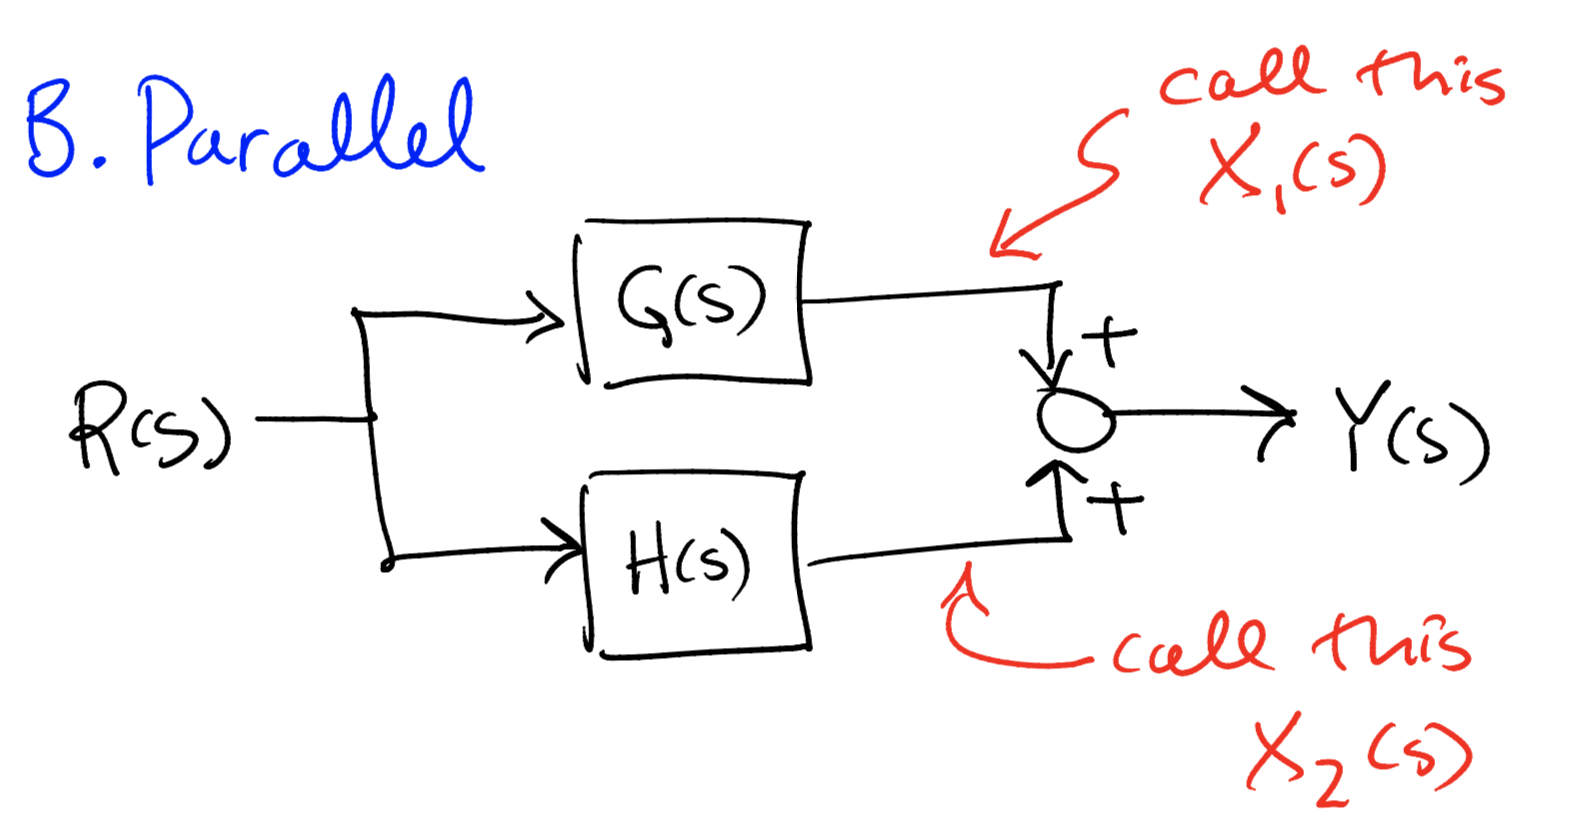 B. Parallel
call this
X₁(s)
G(s)
+
R(s)
Y(s)
+
H(s)
call this
X₂(s)